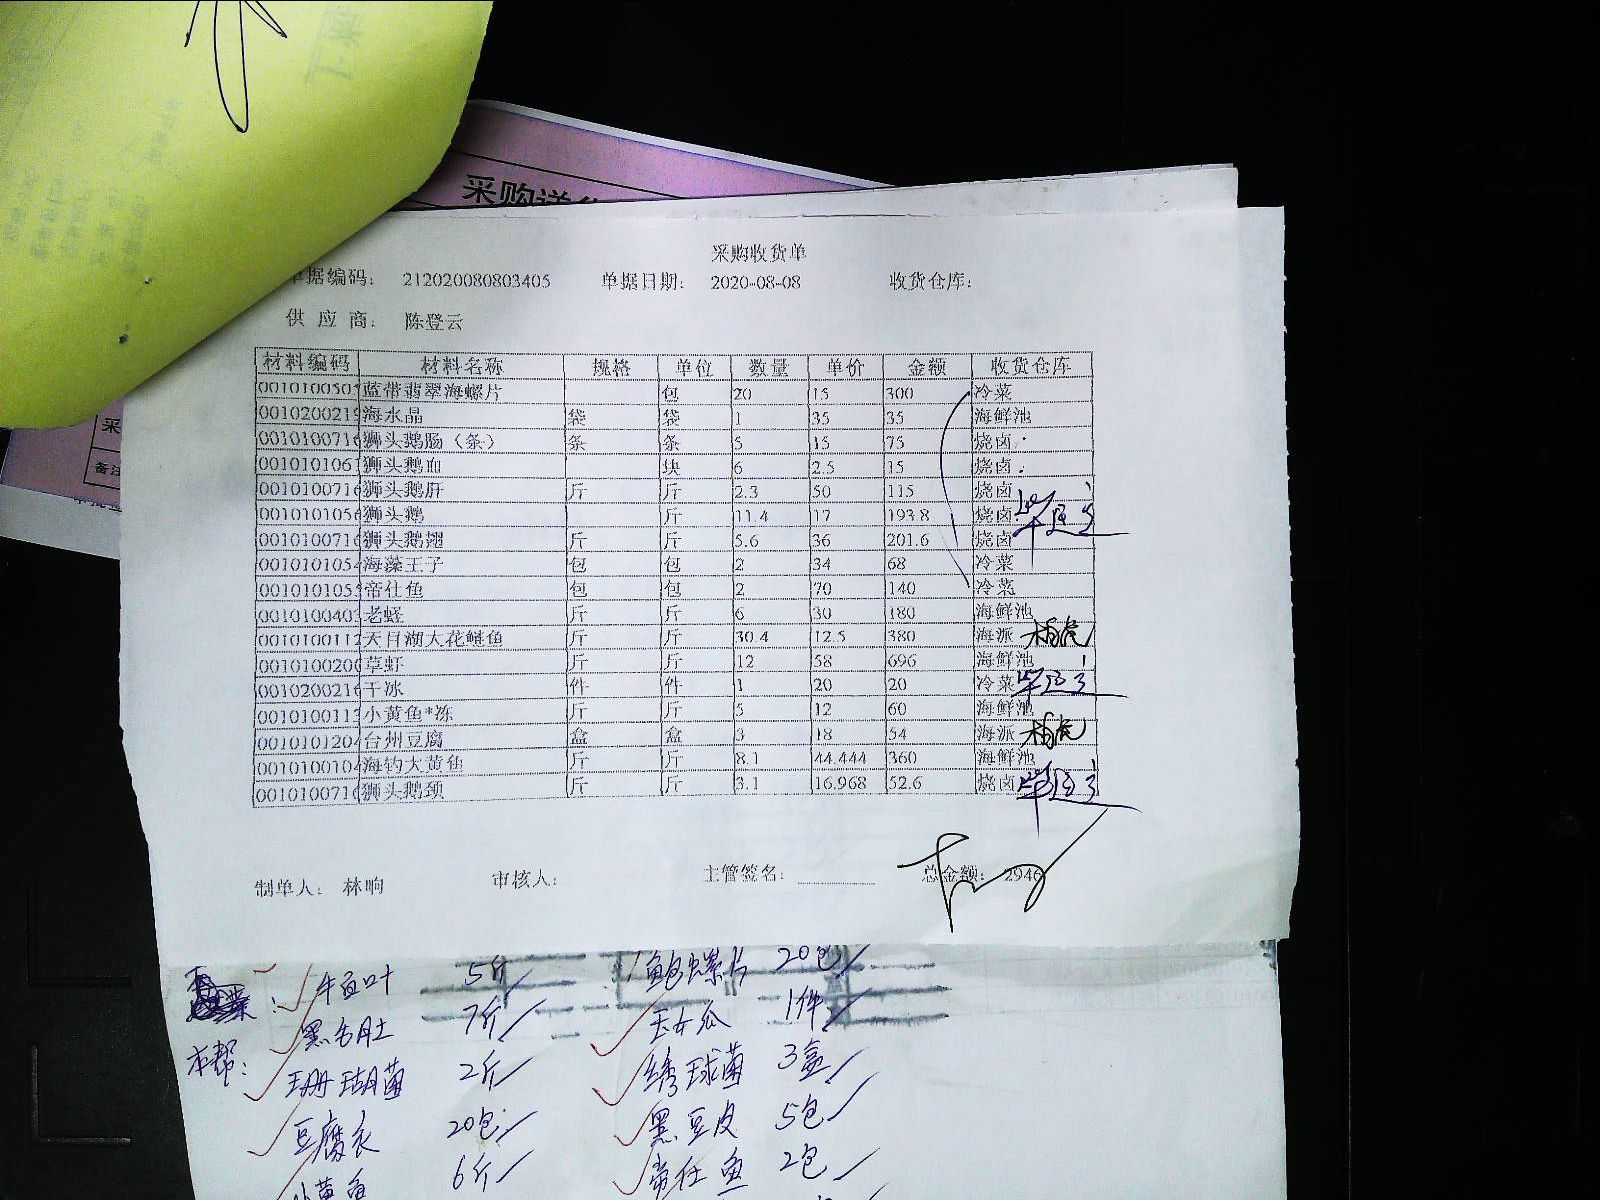 采购送
采
备注
采购收货单
单据编码： 212020080803405 单据日期： 2020-08-08 收货仓库：
供 应 商： 陈登云
材料编码 材料名称 规格 单位 数量 单价 金额 收货仓库
0010100505 蓝带翡翠海螺片 包 20 15 300 冷菜
0010200219 海水晶 袋 袋 1 35 35 海鲜池
0010100716 狮头鹅肠（条） 条 条 5 15 75 烧卤
001010106 狮头鹅血 块 6 2.5 15 烧卤
0010100716 狮头鹅肝 斤 斤 2.3 50 115 烧卤
0010101056 狮头鹅 斤 11.4 17 193.8 烧卤
0010100716 狮头鹅翅 斤 斤 5.6 36 201.6 烧卤
0010101054 海藻王子 包 包 2 34 68 冷菜
001010105 帝仕鱼 包 包 2 70 140 冷菜
001010040 老蛏 斤 斤 6 30 180 海鲜池
0010100112 天目湖大花鲢鱼 斤 斤 30.4 12.5 380 海派
0010100200 草虾 斤 斤 12 58 696 海鲜池
0010200216 干冰 件 件 1 20 20 冷菜
001010011 小黄鱼*冻 斤 斤 5 12 60 海鲜池
0010101204 台州豆腐 盒 盒 3 18 54 海派
0010100104 海钓大黄鱼 斤 斤 8.1 44.444 360 海鲜池
0010100716 狮头鹅颈 斤 斤 3.1 16.968 52.6 烧卤
制单人： 林响 审核人： 主管签名： 总金额： 2946
牛百叶 5斤 鲍螺片 20包
黑毛肚 7斤 玉女瓜 1件
本帮： 珊瑚菌 2斤 绣球菌 3盒
豆腐衣 20包 黑豆皮 5包
小黄鱼 6斤 帝仕鱼 2包